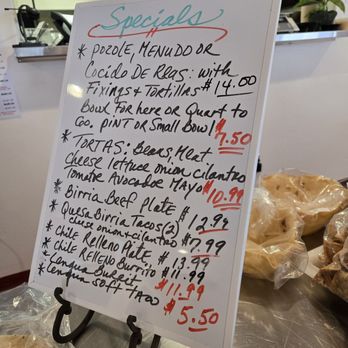 Specials
* POZOLE, MENUDO OR
Cocido DE Res: with
Fixings & Tortillas $14.00
Bowl for here or Quart to
Go. PINT or Small Bowl $7.50
* TORTAS: Beans, Meat
Cheese lettuce onion Cilantro
Tomatoe Avocadoe Mayo $10.99
* Birria Beef Plate $12.99
* Quesa Birria Tacos (2)
cheese onion + cilantro $7.99
* Chile Relleno Plate $13.99
* Chile RELLENO Burrito $11.99
* Lengua Burrito $11.99
* Lengua soft Taco $5.50